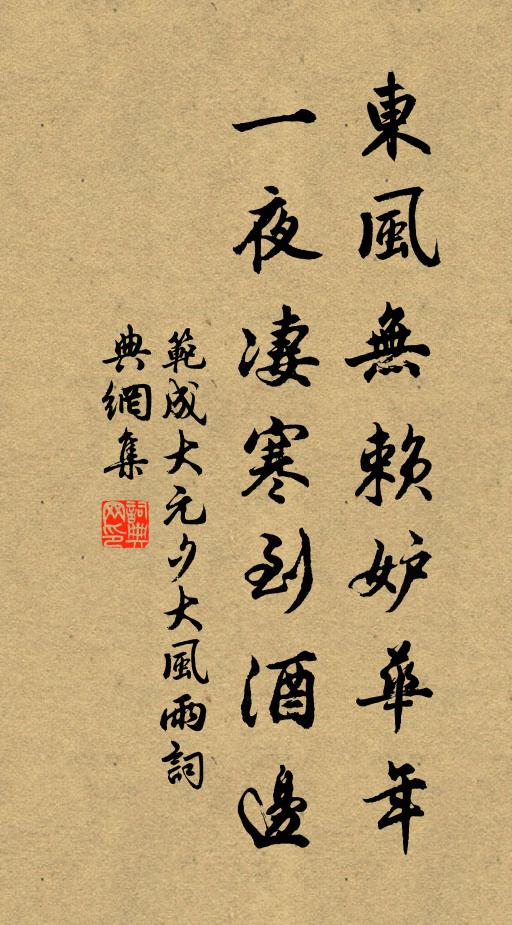 東風無賴妒華年
一夜凄寒到酒邊
範成大元夕大風雨詞
典網集
詞典網印